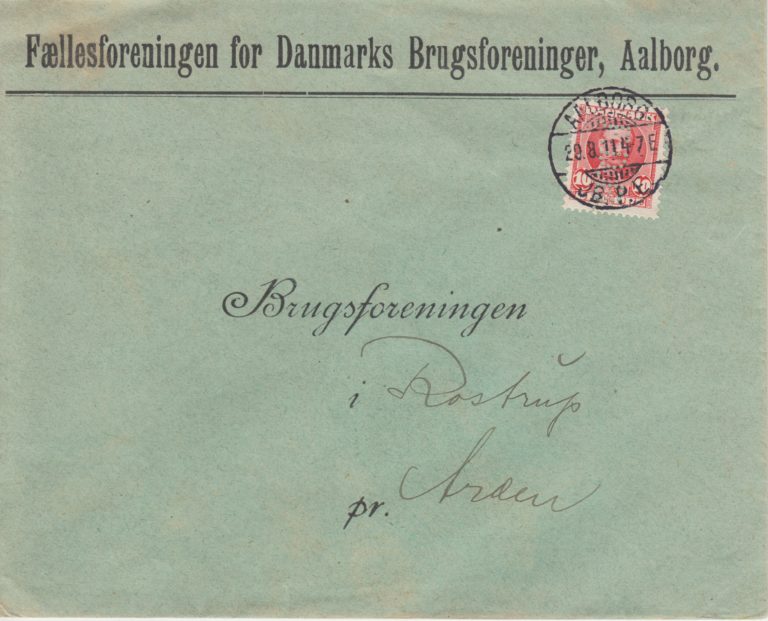 Fællesforeningen for Danmarks Brugsforeninger, Aalborg.
AALBORG
29.8.11.4-7E
JB.P.E
10
Brugsforeningen
i Rostrup
pr. Arden